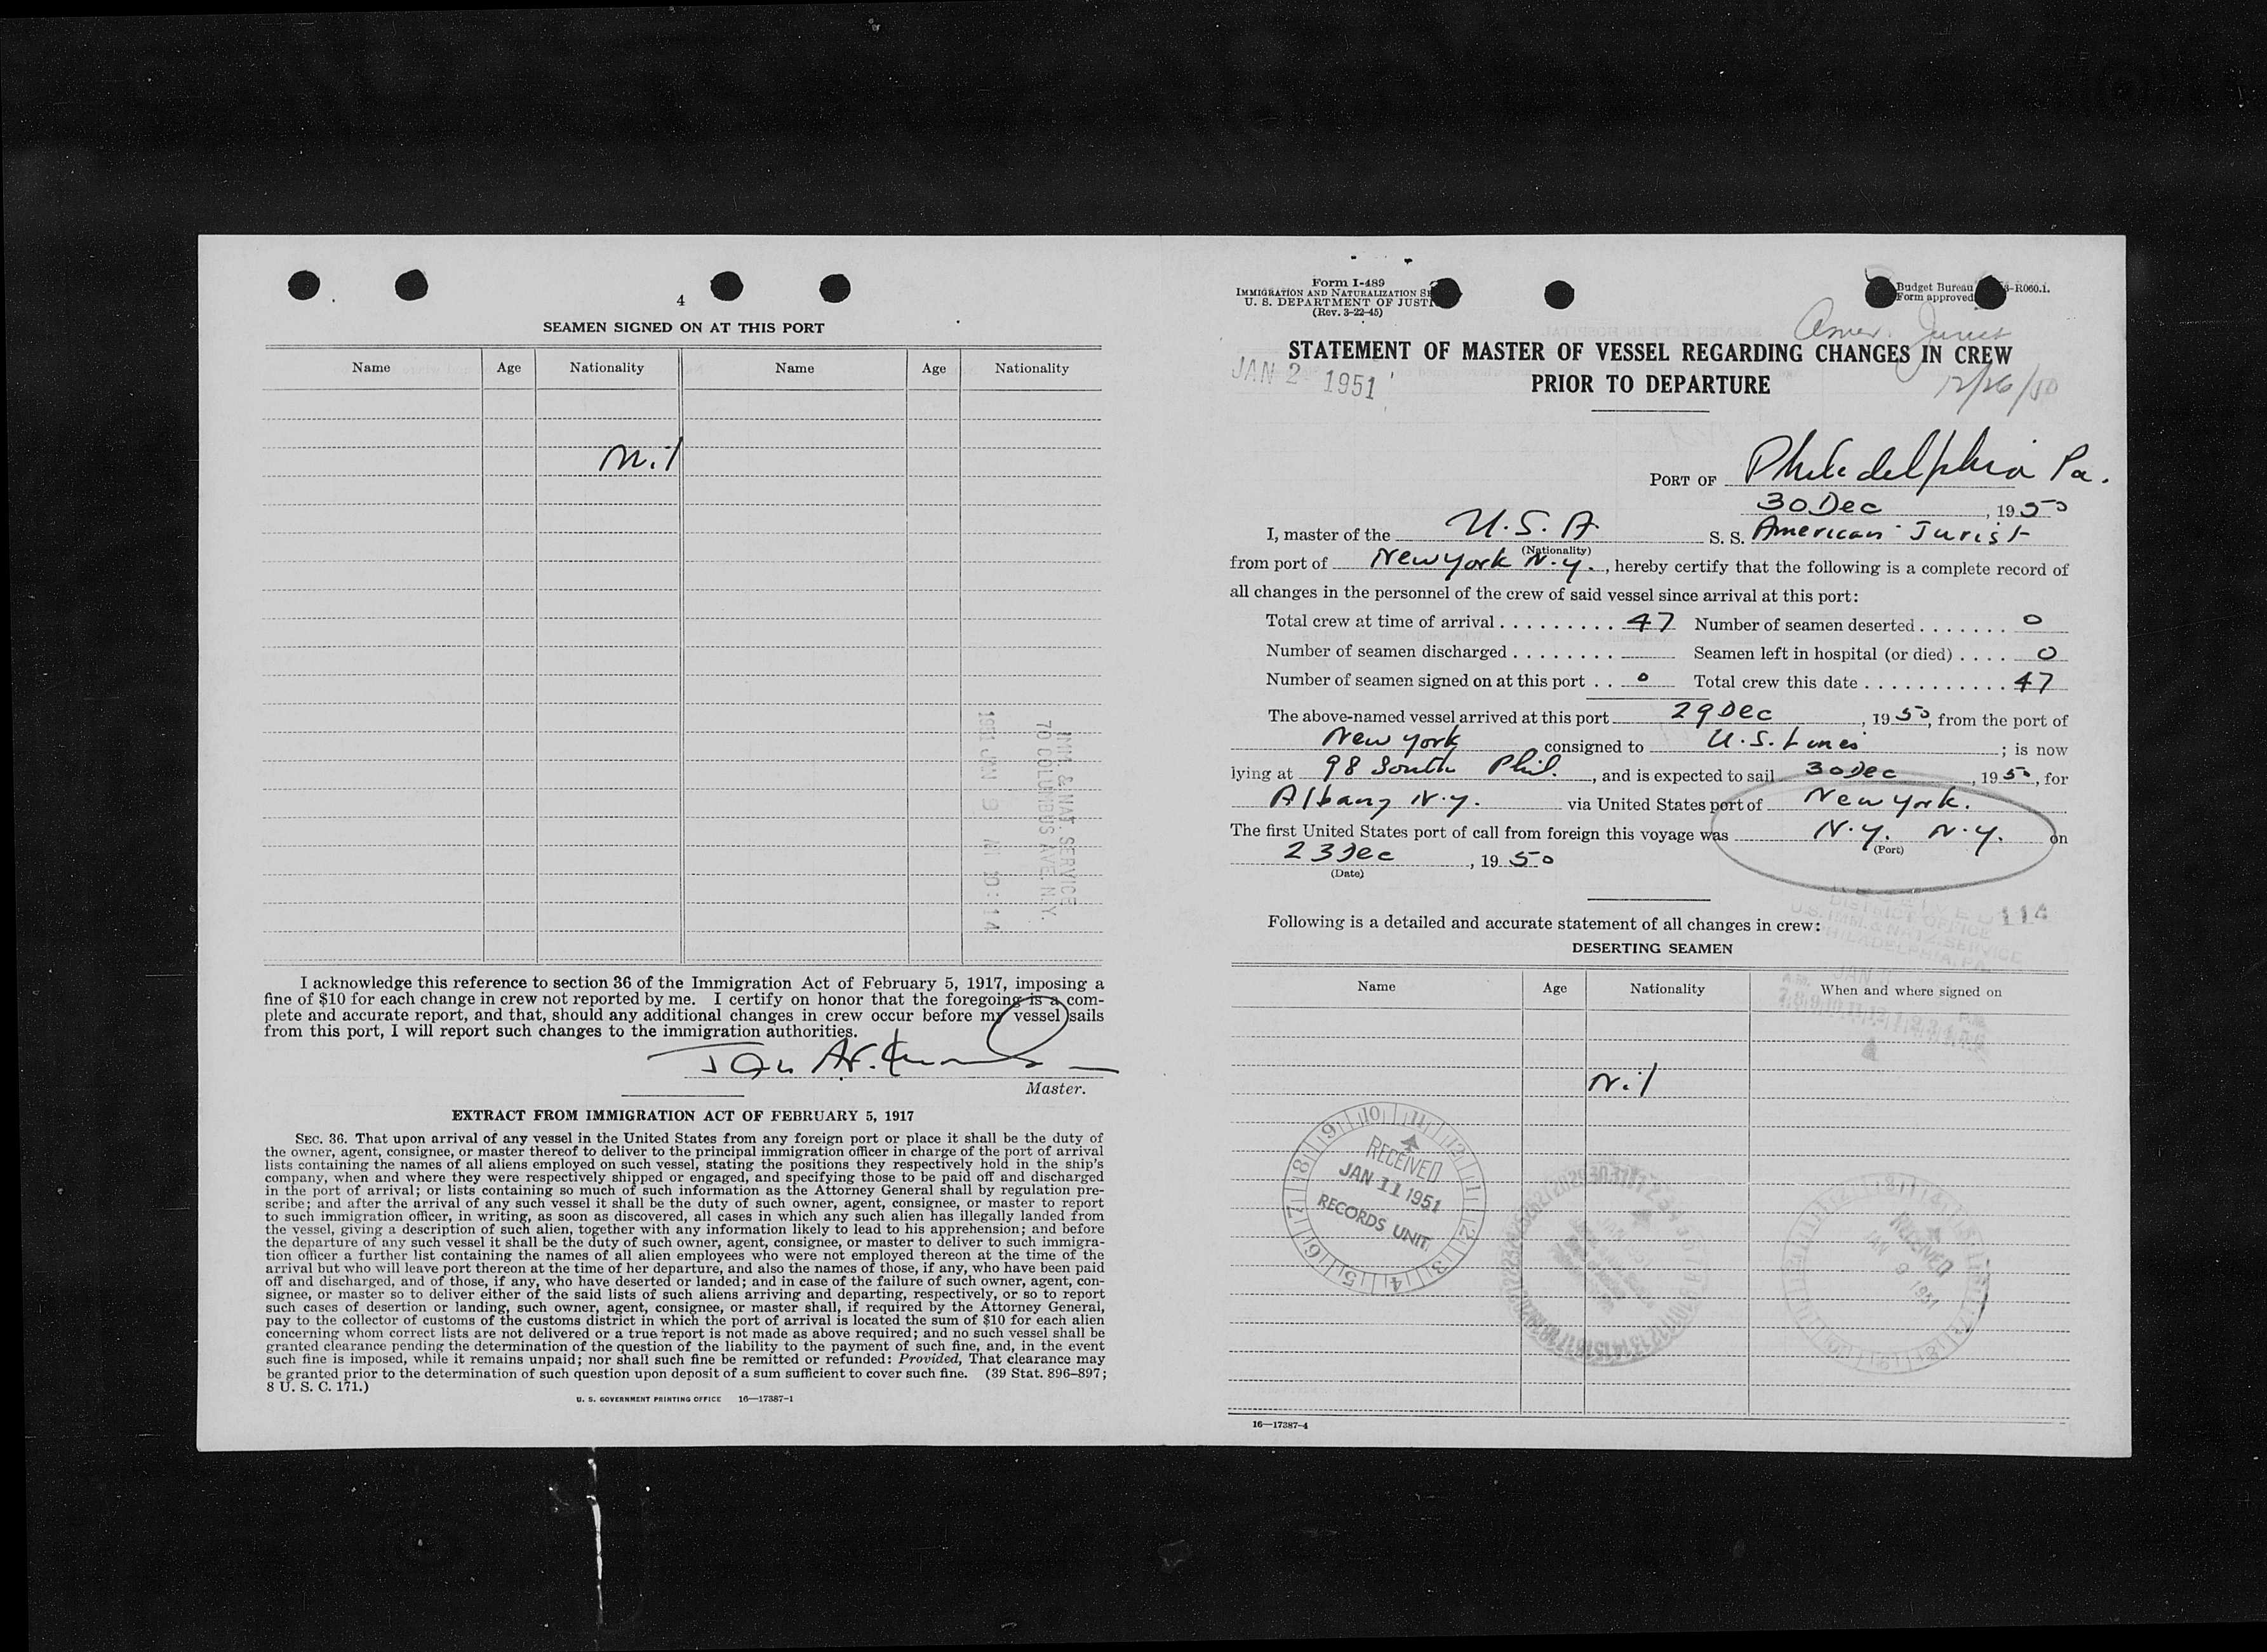 4
SEAMEN SIGNED ON AT THIS PORT
Name Age Nationality Name Age Nationality
Nil
IMM. & NAT. SERVICE
70 COLUMBUS AVE. N.Y.
1951 JAN 9 AM 10:14
I acknowledge this reference to section 36 of the Immigration Act of February 5, 1917, imposing a
fine of $10 for each change in crew not reported by me. I certify on honor that the foregoing is a com-
plete and accurate report, and that, should any additional changes in crew occur before my vessel sails
from this port, I will report such changes to the immigration authorities.
Master.
EXTRACT FROM IMMIGRATION ACT OF FEBRUARY 5, 1917
SEC. 36. That upon arrival of any vessel in the United States from any foreign port or place it shall be the duty of
the owner, agent, consignee, or master thereof to deliver to the principal immigration officer in charge of the port of arrival
lists containing the names of all aliens employed on such vessel, stating the positions they respectively hold in the ship's
company, when and where they were respectively shipped or engaged, and specifying those to be paid off and discharged
in the port of arrival; or lists containing so much of such information as the Attorney General shall by regulation pre-
scribe; and after the arrival of any such vessel it shall be the duty of such owner, agent, consignee, or master to report
to such immigration officer, in writing, as soon as discovered, all cases in which any such alien has illegally landed from
the vessel, giving a description of such alien, together with any information likely to lead to his apprehension; and before
the departure of any such vessel it shall be the duty of such owner, agent, consignee, or master to deliver to such immigra-
tion officer a further list containing the names of all alien employees who were not employed thereon at the time of the
arrival but who will leave port thereon at the time of her departure, and also the names of those, if any, who have been paid
off and discharged, and of those, if any, who have deserted or landed; and in case of the failure of such owner, agent, con-
signee, or master so to deliver either of the said lists of such aliens arriving and departing, respectively, or so to report
such cases of desertion or landing, such owner, agent, consignee, or master shall, if required by the Attorney General,
pay to the collector of customs of the customs district in which the port of arrival is located the sum of $10 for each alien
concerning whom correct lists are not delivered or a true report is not made as above required; and no such vessel shall be
granted clearance pending the determination of the question of the liability to the payment of such fine, and, in the event
such fine is imposed, while it remains unpaid; nor shall such fine be remitted or refunded: Provided, That clearance may
be granted prior to the determination of such question upon deposit of a sum sufficient to cover such fine. (39 Stat. 896–897;
8 U. S. C. 171.)
U. S. GOVERNMENT PRINTING OFFICE 16—17387-1
Form I-489
IMMIGRATION AND NATURALIZATION
U. S. DEPARTMENT OF
(Rev. 3-22-45)
Budget Bureau -R060.1.
Form approved
Amer. Jurist
12/26/50
STATEMENT OF MASTER OF VESSEL REGARDING CHANGES IN CREW
PRIOR TO DEPARTURE
JAN 2 1951
PORT OF Philadelphia Pa.
30 Dec , 1950
I, master of the U.S.A S. S. American Jurist
(Nationality)
from port of New York N.Y., hereby certify that the following is a complete record of
all changes in the personnel of the crew of said vessel since arrival at this port:
Total crew at time of arrival . . . . . . . . . 47 Number of seamen deserted . . . . . . . 0
Number of seamen discharged . . . . . . . . Seamen left in hospital (or died) . . . . 0
Number of seamen signed on at this port . . 0 Total crew this date . . . . . . . . . . . 47
The above-named vessel arrived at this port 29 Dec , 1950, from the port of
New York consigned to U.S. Lines ; is now
lying at 98 South Phil. , and is expected to sail 30 Dec , 1950, for
Albany N.Y. via United States port of New York.
The first United States port of call from foreign this voyage was N.Y. N.Y. on
(Port)
23 Dec , 1950
(Date)
RECEIVED 114
DISTRICT OFFICE
U.S. IMM. & NATZ. SERVICE
PHILADELPHIA, PA.
Following is a detailed and accurate statement of all changes in crew:
DESERTING SEAMEN
Name Age Nationality When and where signed on
Nil
RECEIVED
JAN 11 1951
RECORDS UNIT
RECEIVED
JAN 9 1951
16—17387-4